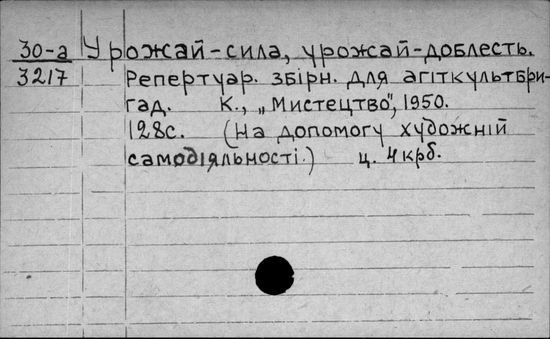 30-а Урожай-сила, урожай-доблесть.
3217 Репертуар. збірн. для агіткультбри-
гад. К., „Мистецтво", 1950.
128с. (На допомогу художній
самодіяльності.) ц. 4 крб.